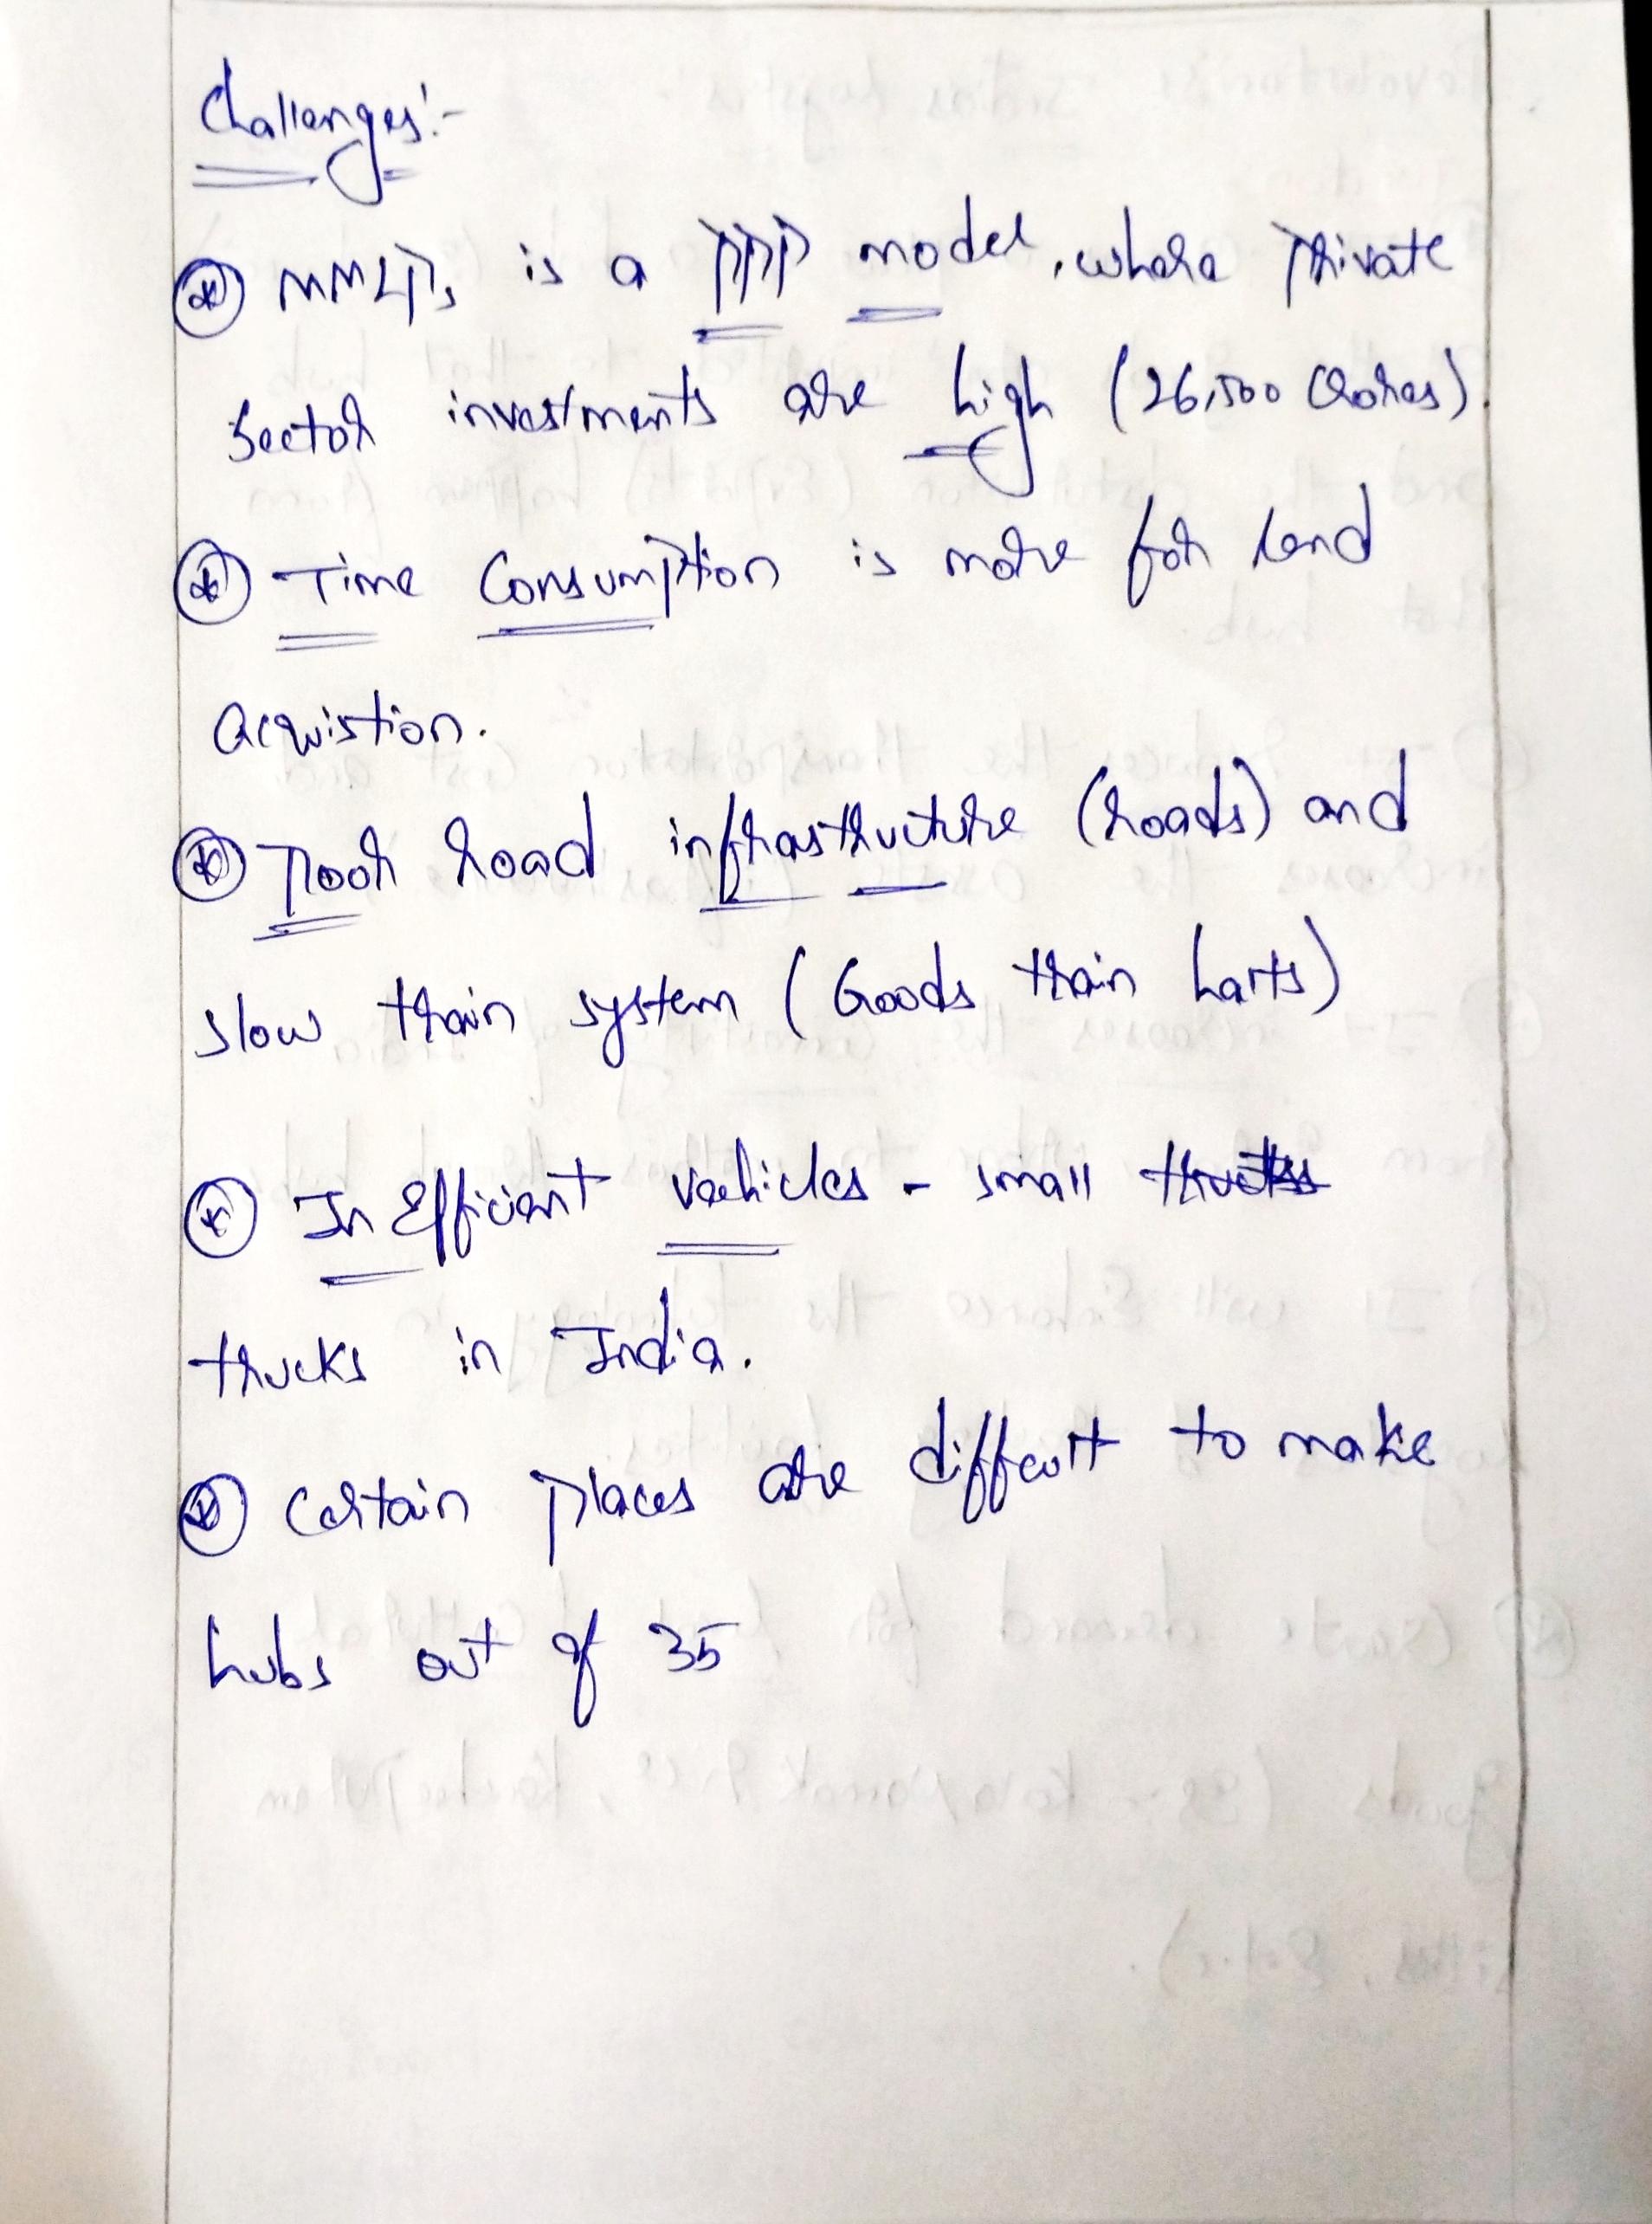 Challenges:-
⊛ MMLPs is a PPP model, where Private
Sector investments are high (26,500 Crores).
⊛ Time Consumption is more for land
acquistion.
⊛ Poor road infrastructure (roads) and
slow train system (Goods train harts)
⊛ In Efficient vechicles - small trucks
trucks in India.
⊛ Certain places are difficult to make
hubs out of 35